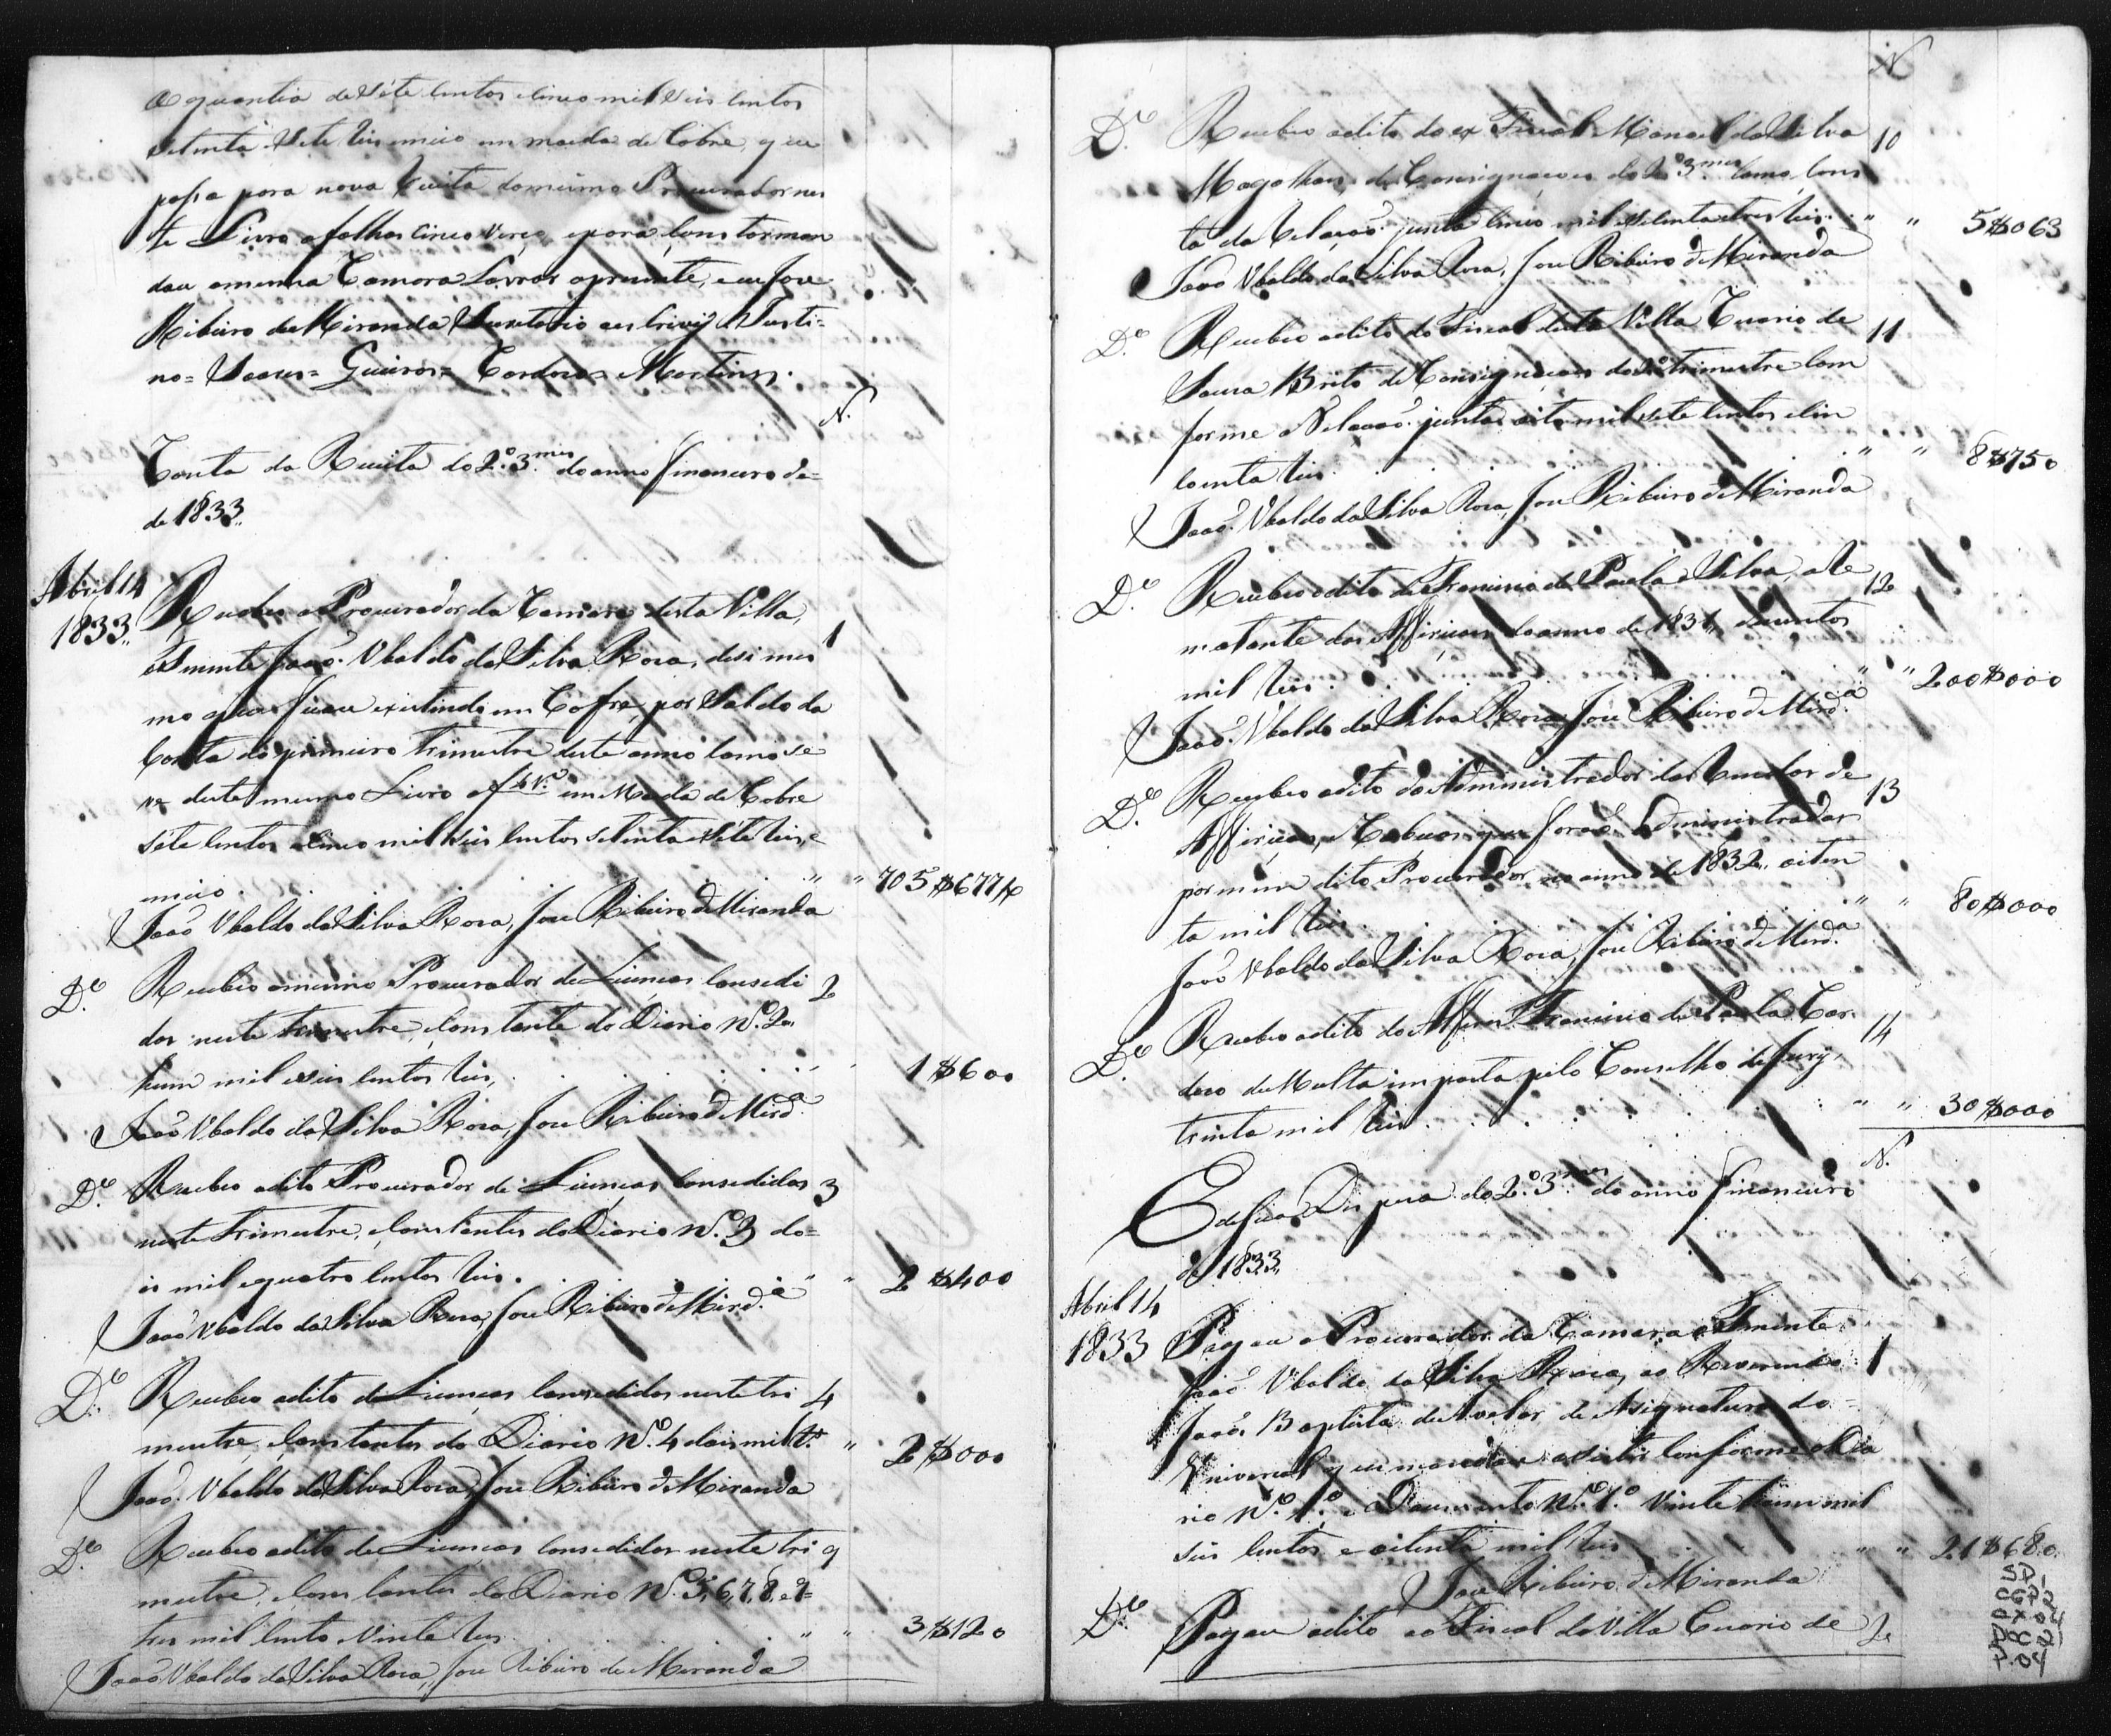 A quantia de Séte Centos e Cinco mil e Seis Centos
Setenta e Sete Reis e meio em moeda de Cobre, que
passa para nova Receita do mesmo Procurador nes
te Livro a folhas Cinco verço, e para Constar man
dou a mesma Camara Lavrar o prezente, eu Joze
Ribeiro de Miranda Secretario escrivy
no = Soares = Cardozo = Martins.
N.
Conta da Receita do 2.º 3.mes do anno financeiro de =
de 1833.
Abril 14
1833.
Recebeo o Procurador da Camara desta Villa,
o Tenente João Ubaldo da Silva Roza, de si mes 1
mo que ficou existindo em Cófre, por Saldo da
Conta do primeiro trimestre deste anno como se
ve deste mesmo Livro a f em Moeda de Cobre
séte centos e Cinco mil e seis centos setenta e séte reis, e
meio . " " 705$677½
João Ubaldo da Silva Roza, Joze Ribeiro de Miranda
D.º Recebeo o mesmo Procurador de Licenças Consedi 2
das neste trimestre, Constante do Diario N.º 2"
hum mil e seis centos reis, 1$600
João Ubaldo da Silva Roza, Joze Ribeiro de Mird.ª
D.º Recebeo o dito Procurador de Licenças Consedidas 3
neste trimestre, Constantes do Diario N.º 3 do=
is mil e quatro centos reis. " " 2$400
João Ubaldo da Silva Roza, Joze Ribeiro de Mird.ª
D.º Recebeo o dito de Licenças Consedidas neste tri 4
mestre, Constantes do Diario N.º 4 dois mil r.s " 2$000
João Ubaldo da Silva Roza, Joze Ribeiro de Miranda
D.º Recebeo o dito de Licenças Consedidas neste tri 9
mestre, Constantes do Diario N.º 5, 6, 7, 8, e 9=
tres mil cento e vinte reis " " 3$120
João Ubaldo da Silva Roza, Joze Ribeiro de Miranda
N
D.º Recebeo o dito do ex Fiscal Manoel da Silva 10
Magalhães, de Consignaçoes do 2.º 3.mes Como Cons
ta da Relação junta Cinco mil e Sesenta e tres reis. " " 5$063
João Ubaldo da Silva Roza, Joze Ribeiro de Miranda
D.º Recebeo o dito do Fiscal desta Villa de 11
Souza Brito de Consignaçoes do 2.º trimestre Com
forme a Relação junta oito mil sete Centos e Cin
coenta reis " " 8$750
João Ubaldo da Silva Roza, Joze Ribeiro de Miranda
D.º Recebeo o dito de Francisco de Paula e Silva, aRe 12
matante das Affiriçoens do anno de 1831, duzentos
mil reis " " 200$000
João Ubaldo da Silva Roza, Joze Ribeiro de Mird.ª
D.º Recebeo o dito do Administrador das de 13
Affiriçoes, e Cabeças que forão Administradas
por mim dito Procurador no anno de 1832 oiten
ta mil reis " " 80$000
João Ubaldo da Silva Roza, Joze Ribeiro de Mird.ª
D.º Recebeo o dito do Alferes Francisco de Paula Car 14
dozo de Multa imposta pelo Conselho de Jury,
trinta mil reis " " 30$000
N.
Despeza do 2.º 3.mes do anno financeiro
de 1833
Abril 14
1833 Pagou o Procurador da Camara o Tenente
João Ubaldo da Silva Roza, ao Reverendo 1
João Baptista de Avelar de Asignatura do =
Universal conforme o Dia
rio N.º 1.º e Documento N.º 1.º Vinte e hum mil
seis Centos e oitenta mil reis " " 21$680
Joze Ribeiro de Miranda
D.º Pagou o dito ao Fiscal da Villa de 2
SP1
CGP2
CX 04
DOC 21
P. 04